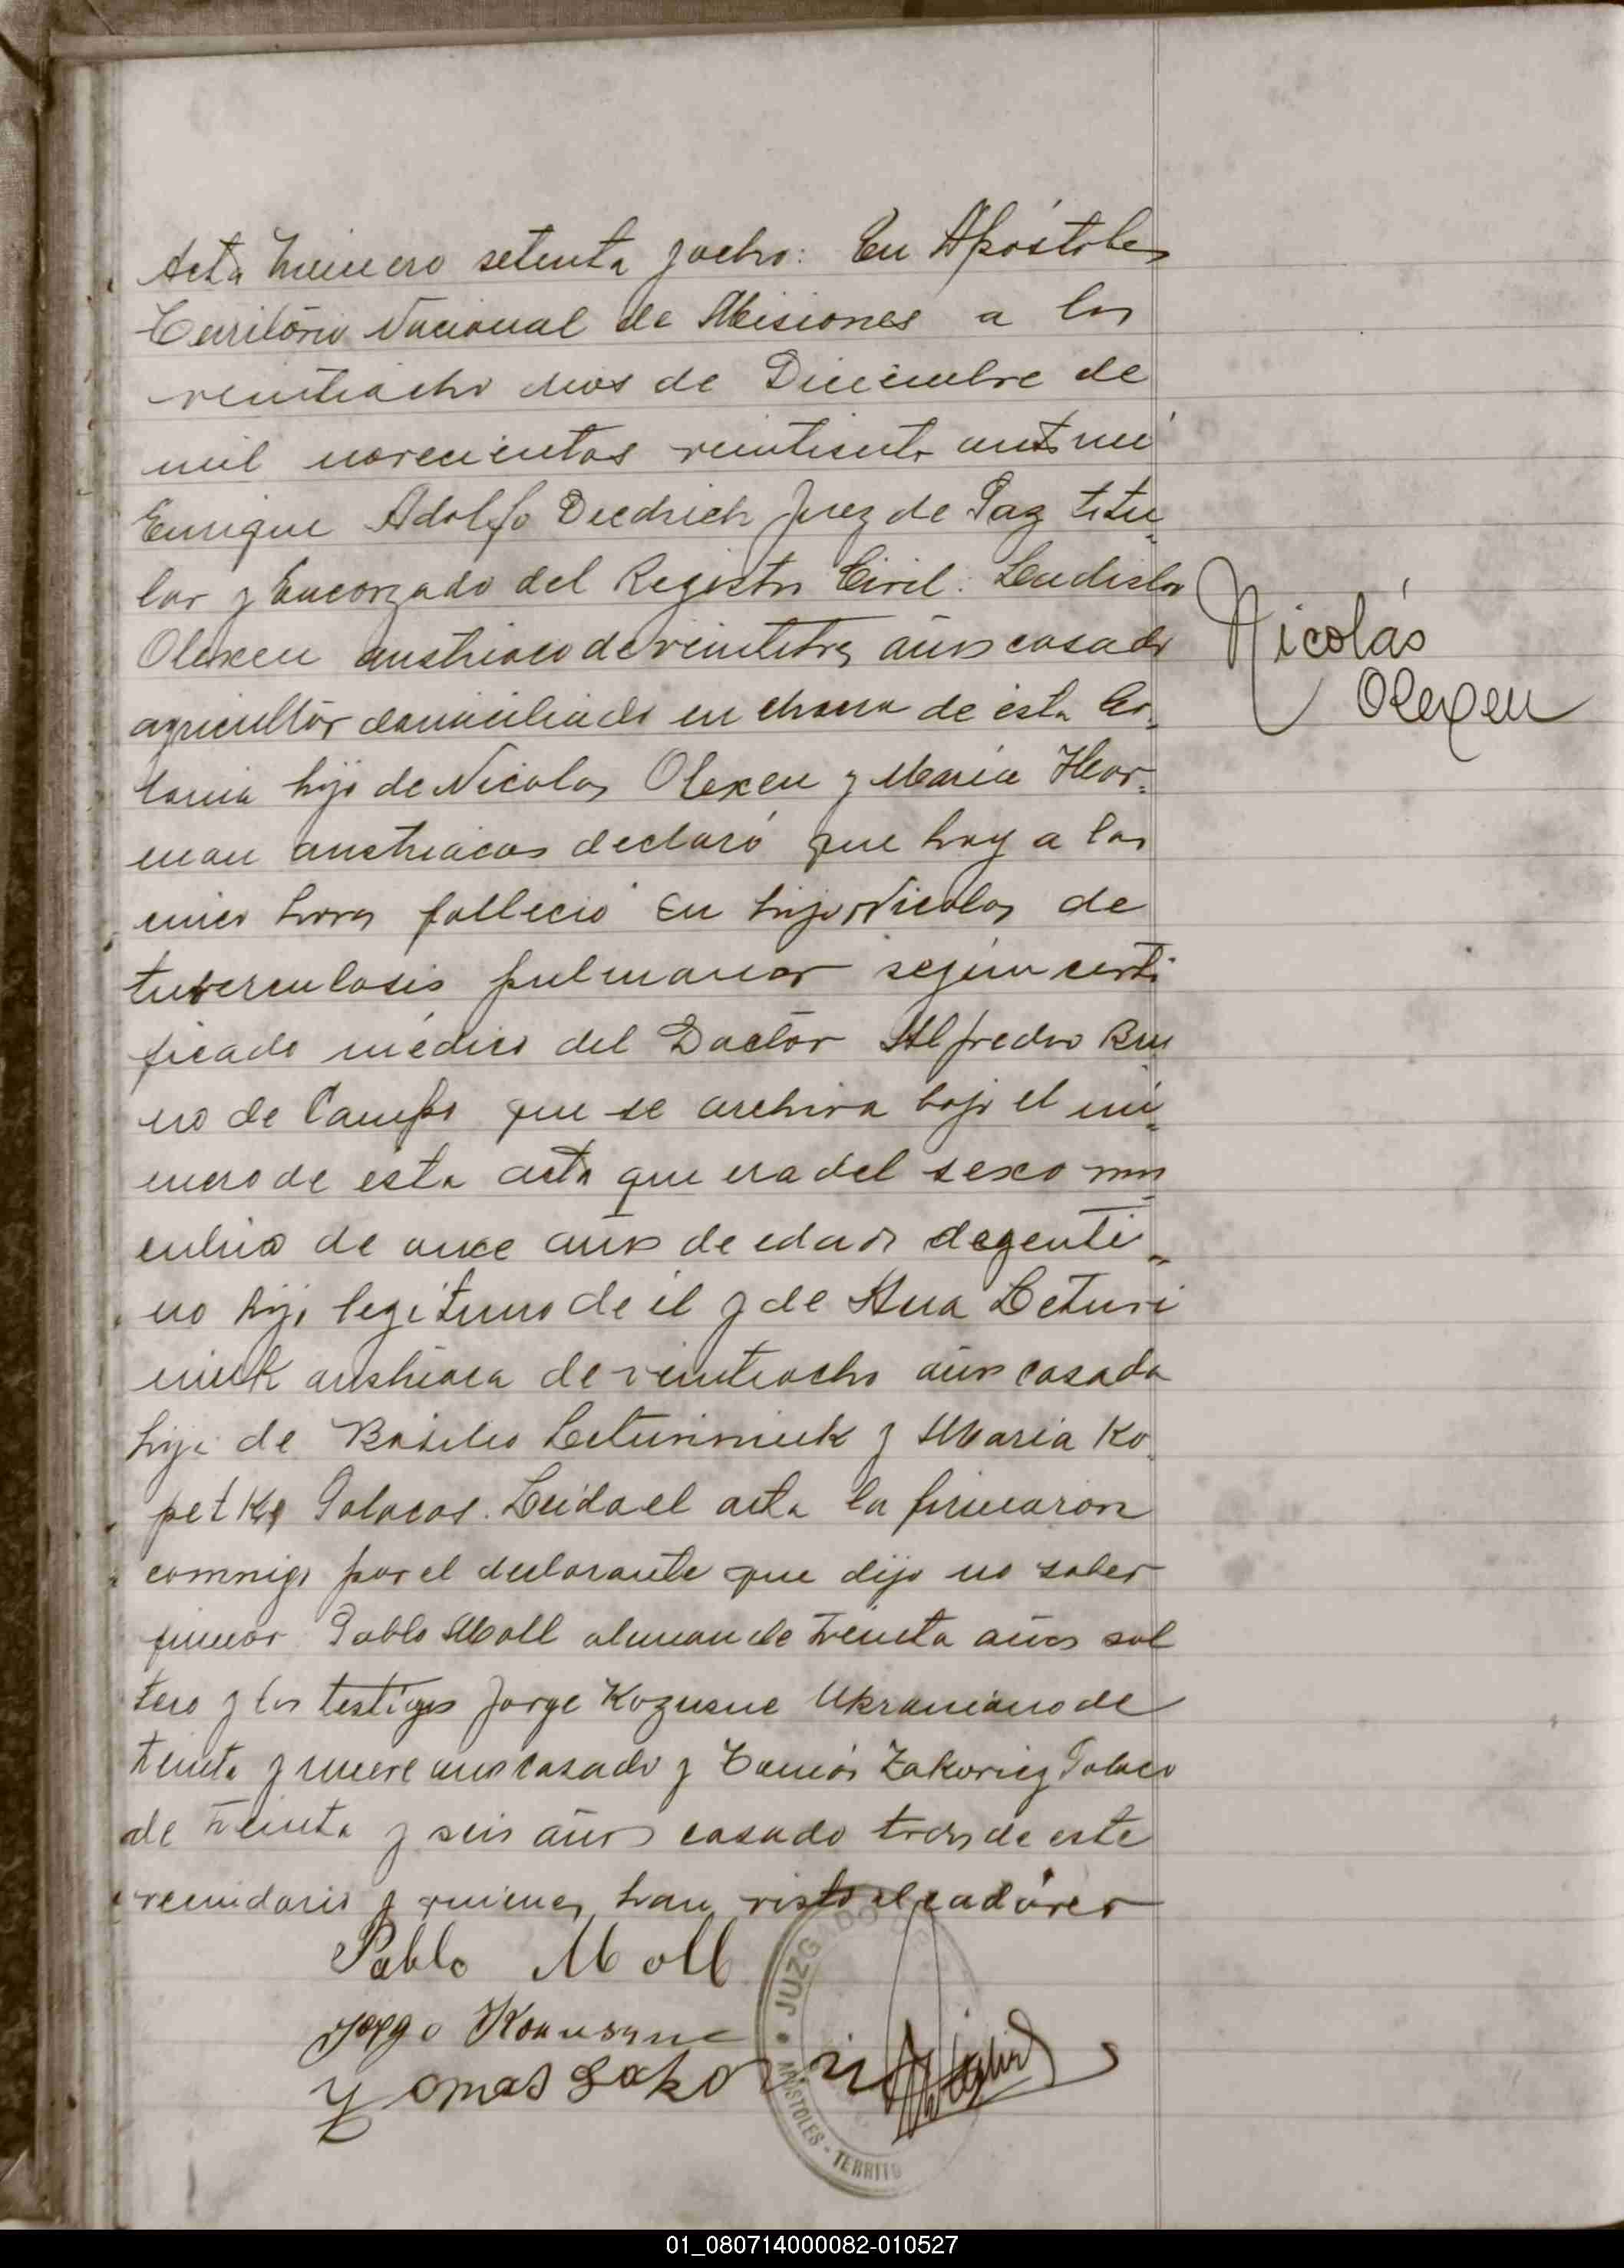 Acta Número setenta y ocho: En Apóstoles
Territorio Nacional de Misiones a los
veintiocho dias de Diciembre de
mil novecientos veintisiete ante mi
Enrique Adolfo Diedrich Juez de Paz titu-
lar y Encargado del Registro Civil: Ladislao
Olexen austriaco de veintitres años casado
agricultor domiciliado en chacra de ésta Co-
lonia hijo de Nicolas Olexen y María Hor-
man austriacos declaró que hoy a las
cinco horas falleció su hijo Nicolas de
tuberculosis pulmonar según certi
ficado médico del Doctor Alfredo Bru
no de Campo que se archiva bajo el nú-
mero de ésta acta que era del sexo mas
culino de once años de edad argenti-
no hijo legítimo de él y de Ana Leturi
niuk austriaca de veintiocho años casada
hija de Basilio Leturiniuk y María Ko-
petky Polacos. Leida el acta la firmaron
conmigo por el declarante que dijo no saber
firmar Pablo Moll aleman de treinta años sol
tero y los testigos Jorge Kozusne Ukraniano de
treinta y nueve años casado y Tomás Zakoviez Polaco
de treinta y seis años casado todos de este
vecindario y quienes han visto el cadáver
Nicolás
Olexen
Pablo Moll
Jorgo
Tomas
JUZG
APÓSTOLES - TERRITO
01_080714000082-010527